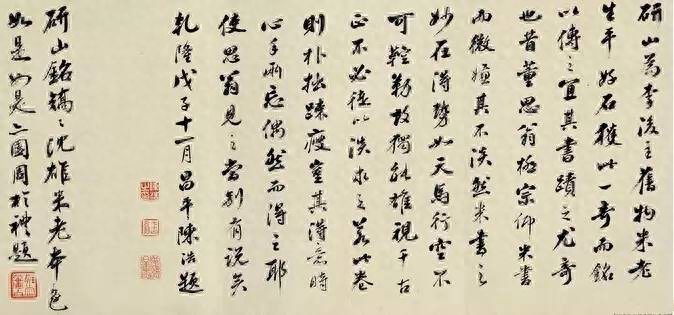 研山為李後主舊物米老
生平好石獲此一奇而銘
以傳之宜其書蹟之尤奇
也昔董思翁極宗仰米書
而微嫌其不淡然米書之
妙在得勢如天馬行空不
可鞚勒故獨能雄視千古
正不必徒以淡求之若此卷
則朴拙疎瘦豈其得意時
心手兩忘偶然而得之耶
使思翁見之當別有說矣
乾隆戊子十一月昌平陳浩題
研山銘矯矯沈雄米老本色
如是如是亦園周於禮題